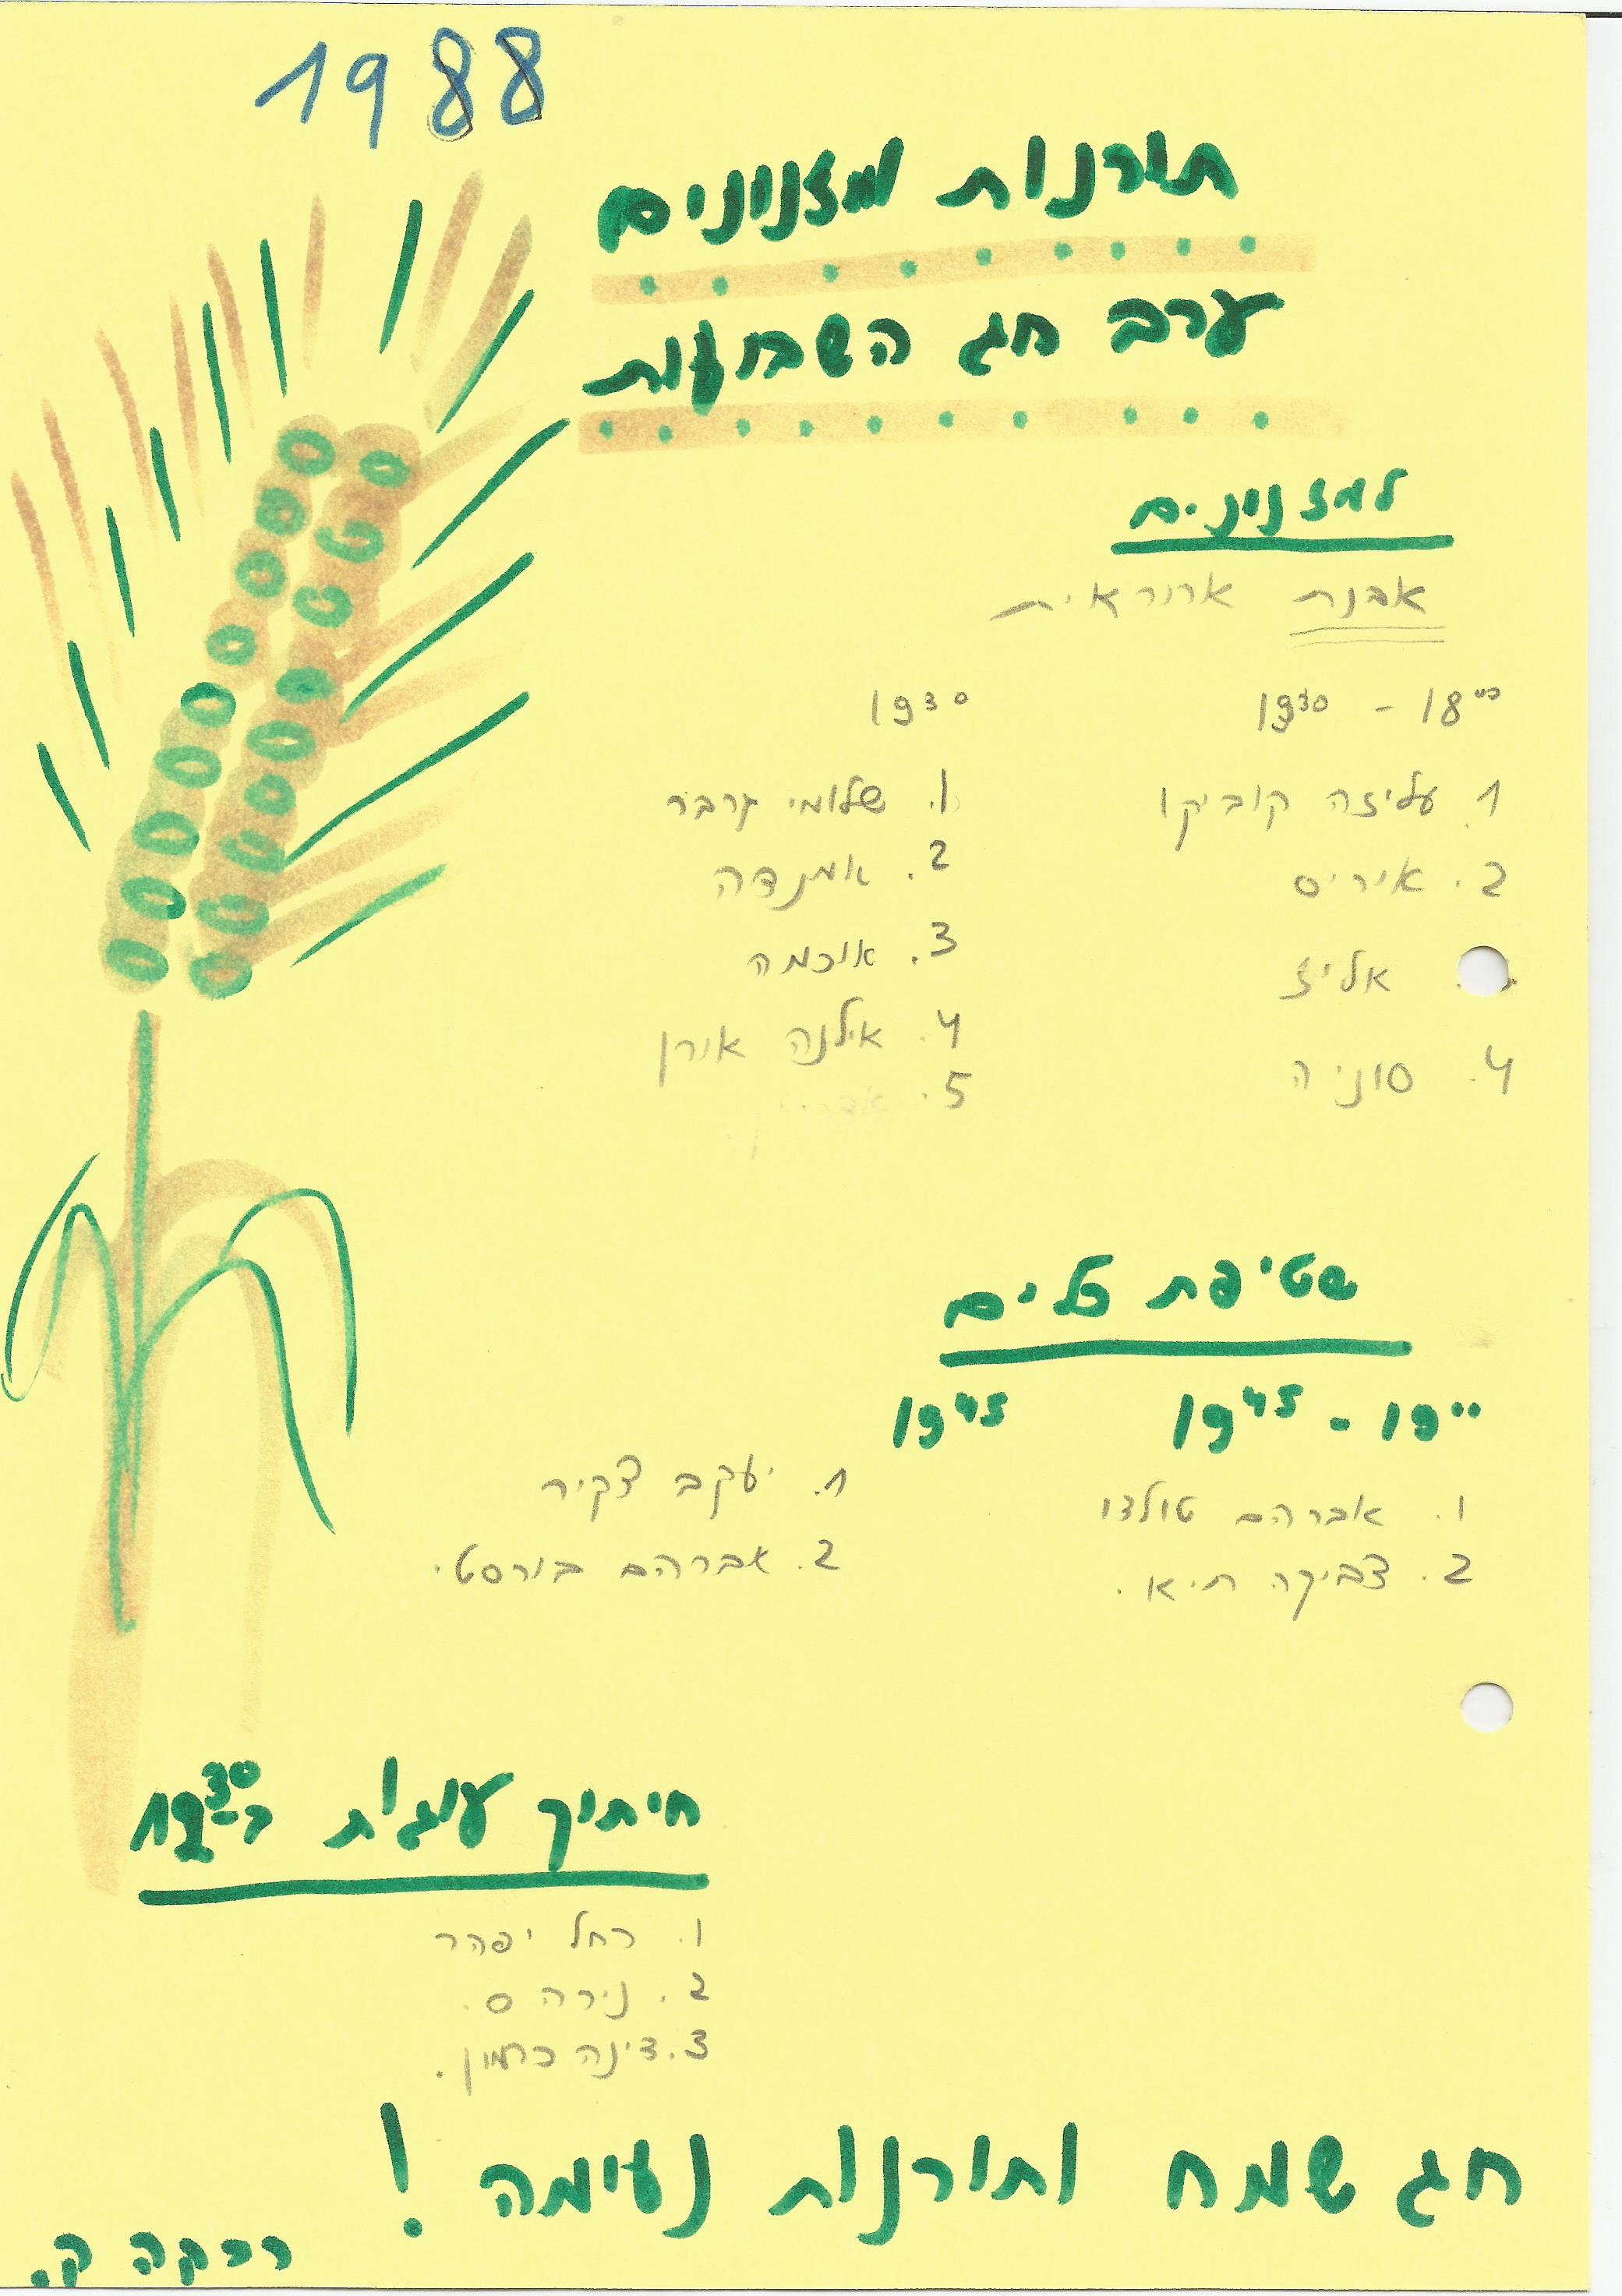 1988
תורנות מזנונים
ערב חג השבועות
למזנונים
ארוראית
18°° - 19³⁰
1. עליזה קוביקו
2. איריס
אליז
4. סוניה
19³⁰
1. שלומי גרבר
2. אמנדה
3. אוכמה
4. אילנה אורן
5.
שטיפת כלים
19°° - 19⁴⁵
1. אברהם טולדו
2. צביקה ת.א.
19⁴⁵
1. יעקב צקיר
2. אברהם בורסט.
חיתוך עוגות ב-19³⁰
1. רחל יפהר
2. נירה ס.
3. דינה כרמון.
חג שמח ותורנות נעימה!
רבקה ק.